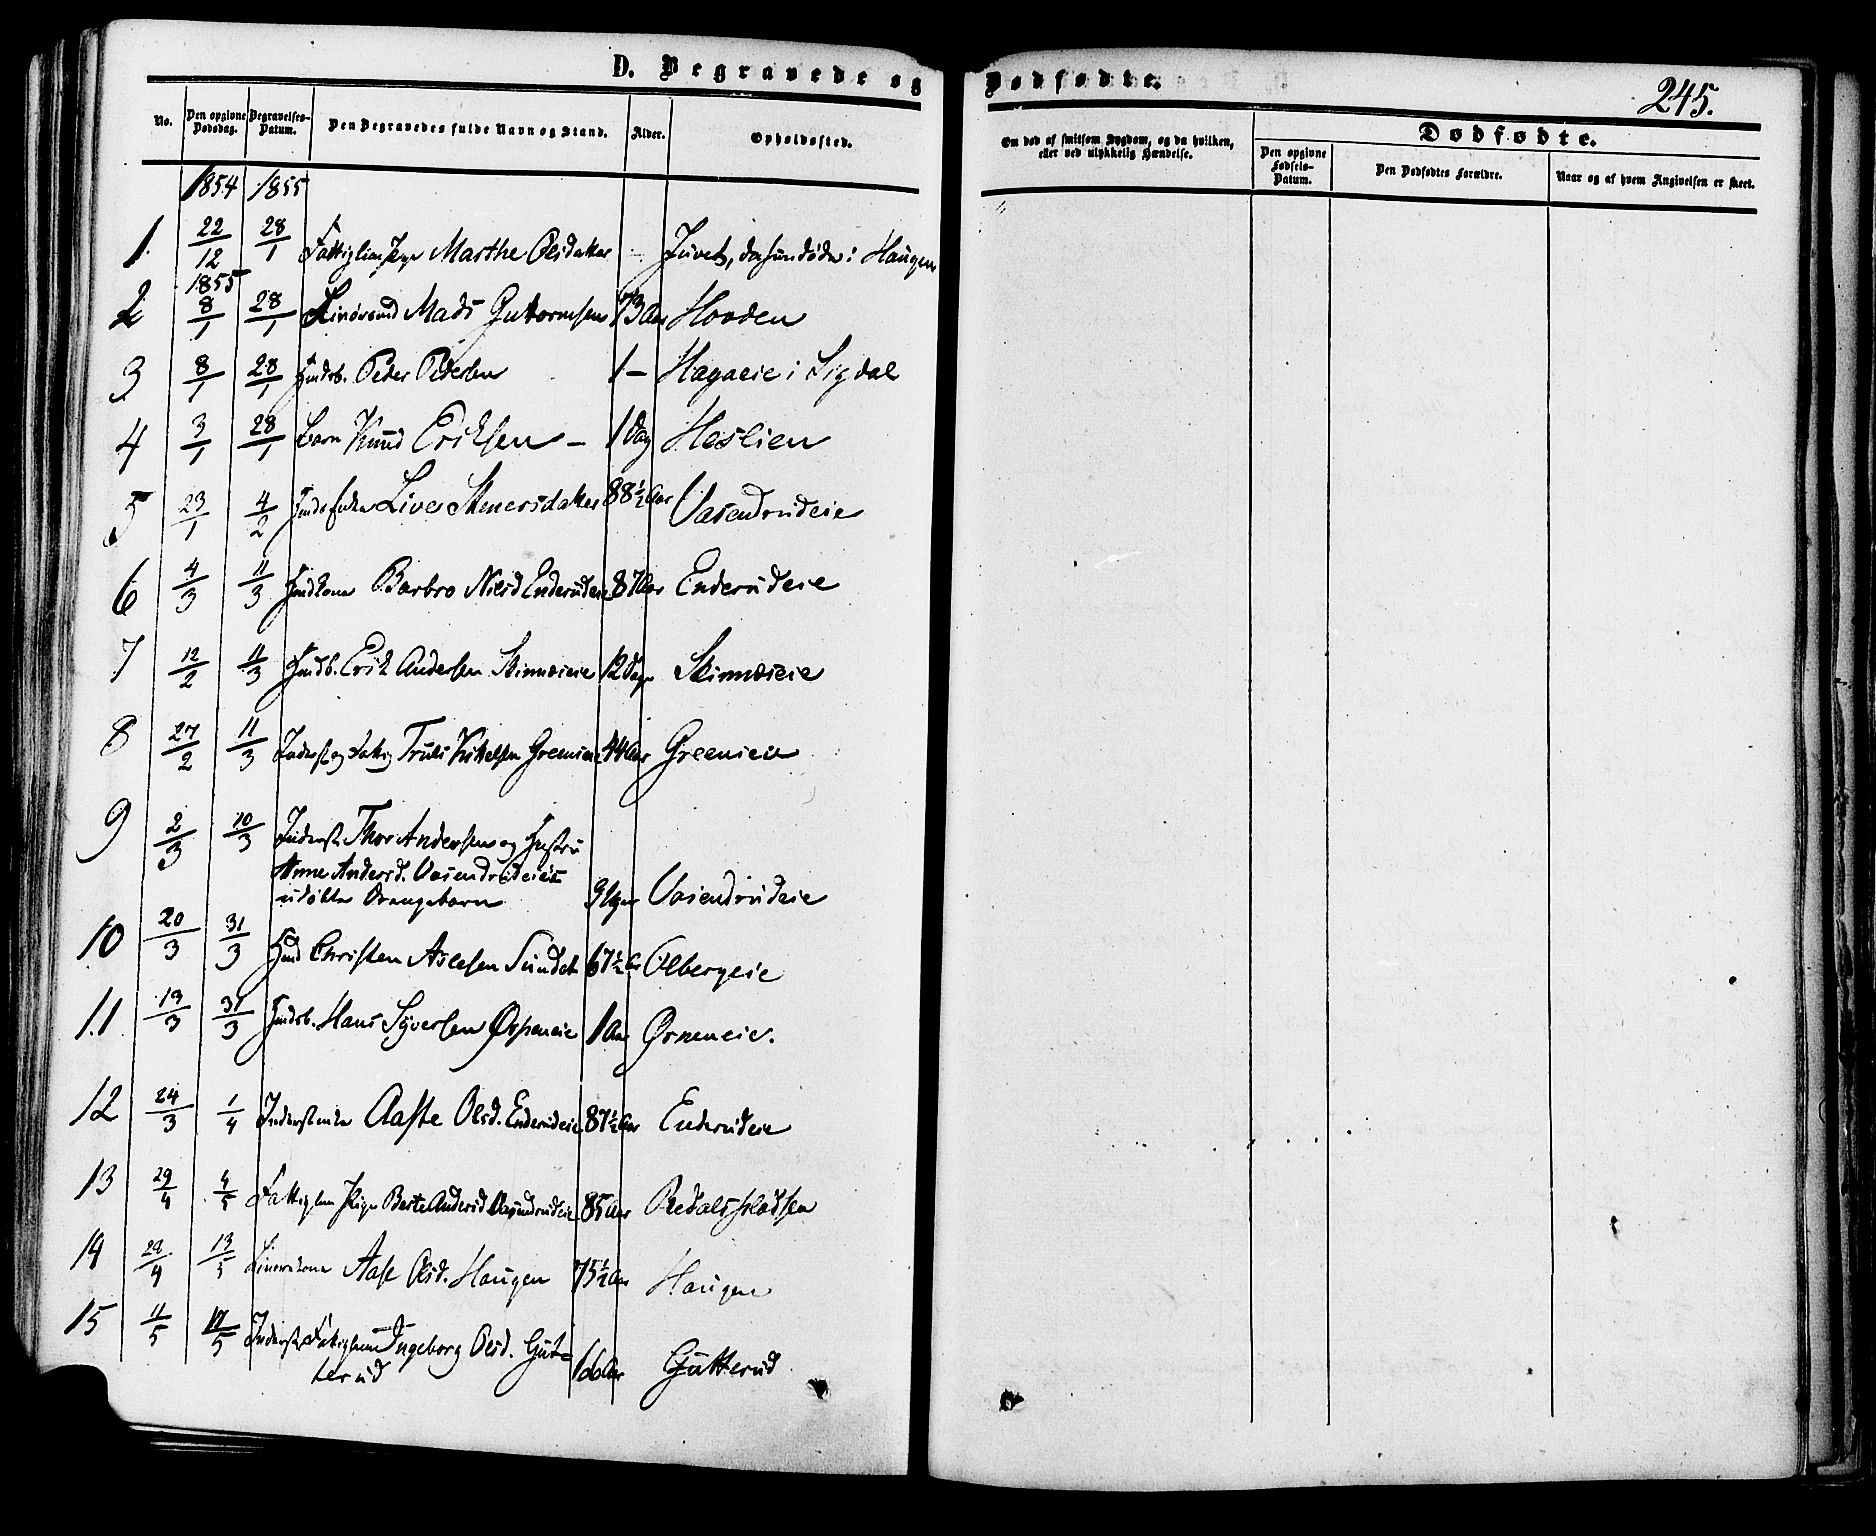 D. Begravede og Dødfødte.
245.
No. Den opgivne Dødsdag. Begravelses-Datum. Den Begravedes fulde Navn og Stand. Alder. Opholdssted. Om død af smitsom Sygdom, og da hvilken, eller ved ulykkelig Hændelse.
Dødfødte.
Den opgivne Fødsels-Datum. Den Dødfødtes Forældre. Naar og af hvem Angivelsen er skeet.
1854 1855
1. 22/12 28/1 Marthe Olsdatter Juvet, Haugen
1855
2 8/1 28/1 Mads Guttormsen 73 Aar Hovden
3 8/1 28/1 Huusb. Peder Pedersen 1 — Hagaeie i Sigdal
4 3/1 28/1 Barn Knud Eriksen — 1 Dag Heslien
5 23/1 4/2 Live Stenersdatter 88½ Aar Vasendrudeie
6 4/3 11/3 Barbro Nielsd Enderudeie 87 Aar Enderudeie
7 12/2 11/3 Huusb. Erik Andersen Skinnæseie 12 Dage Skinnæseie
8 27/2 11/3 Inderst og Truls Kittelsen 44 Aar
9 2/3 10/3 Inderst Thor Andersen og Hustru
Anne Andersd. Vasendrudeies
udøbte Drengebarn 9 Uger Vasendrudeie
10 20/3 31/3 Christen Aslesen Sundet 67½ Aar Olbergeie
11. 19/3 31/3 Huusb. Hans Syversen 1 Aar Ørneneie.
12 24/3 1/4 Aaste Olsd. Enderudeie 87½ Aar Enderudeie
13 29/4 4/5 Pige Berte Andersd Vasendrudeie 85 Aar Redalspladsen
14 29/4 13/5 Aase Olsd. Haugen 75½ Aar Haugen
15 11/5 17/5 Inderst Ingeborg Olsd. Gut=
terud 66 Aar Gutterud